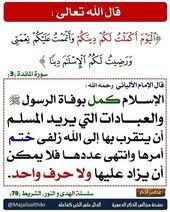 قال الله تعالى :
﴿الْيَوْمَ أَكْمَلْتُ لَكُمْ دِينَكُمْ وَأَتْمَمْتُ عَلَيْكُمْ نِعْمَتِي
وَرَضِيتُ لَكُمُ الْإِسْلَامَ دِينًا﴾
سورة المائدة (3)
قال الإمام الألباني رحمه الله :
الإسلام كمل بوفاة الرسول ﷺ
والعبادات التي يريد المسلم
أن يتقرب بها إلى الله زلفى ختم
أمرها وانتهى عددها فلا يمكن
أن يزاد عليها ولا حرف واحد.
سلسلة الهدى والنور، الشريط (78)
@Majalisalthikr